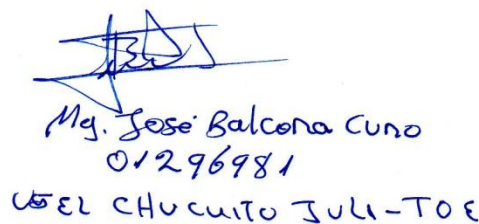 Mg. José Balcona Cuno
01296981
UGEL CHUCUITO JULI-TOE